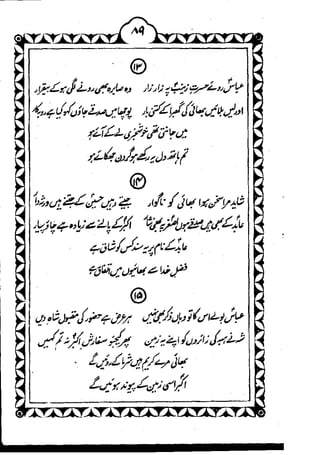 ۸۹
۱۳
عباسؑ روئے حضرتِ زینبؑ پہ زار زار وہ صابرہ بھی رونے لگی ہو کے بیقرار
اور لیں بلائیں بھائی کی گھبرا کے کئی بار پوچھا میں صدقے جاؤں کہو کیا ہے
میں جانتی تھی خوشخبری لے کے آئے ہو
تم ہاتھ دل پہ رکھے ہو گردن جھکائے ہو
۱۴
شاید مرا سخن ہوا بھائی کو ناگوار جیتے رہیں حسینؑ کے جتنے ہیں
عابدؑ کے بھی میں صدقے ہوں اصغرؑ پہ بھی نثار اکبرؑ کے پالنے سے زیادہ ہے پیار
عابدؑ کے نام پر یہ کو شاق ہے
فضلِ خدا سے بھائیوں میں اتفاق ہے
۱۵
عباسؑ بولے اس کا تو وہاں ذکر بھی نہیں ہر عرض ہے حضور کی مقبول شاہ دیں
کی زاروں کو اپنے پھر کیجیو سفارش اکبرؑ نہ تم کہیں
بھائی مرے کریم ہیں کے روئیں گے
اکبرؑ اسی زمین کے پیوند ہوئیں گے